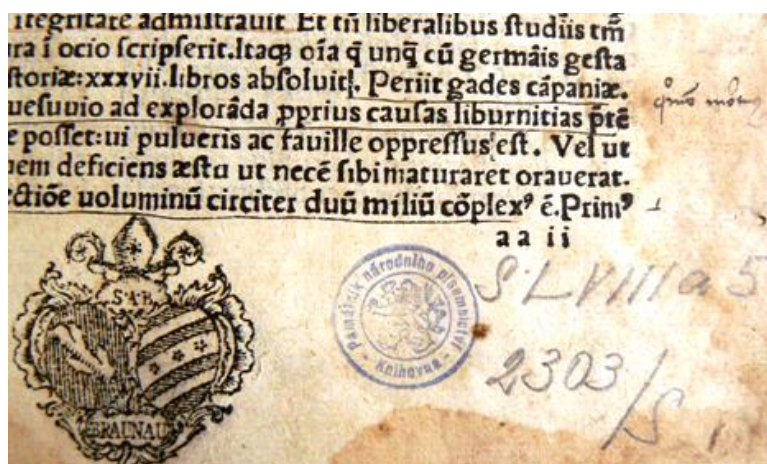 itegritate admiſtrauit. Et tñ liberalibus ſtudiis tm̃
ra i ocio ſcripſerit. Itaq oĩa q̃ unq̃ cũ germãis geſta
ſtoriæ: xxxvii. libros abſoluit. Periit gades cãpaniæ.
ueſuuio ad explorãda pprius cauſas liburnitias p̃tẽ
e poſſet: ui pulueris ac fauille oppreſſus eſt. Vel ut
uem deficiens æſtu ut necẽ ſibi maturaret orauerat.
ectiõe uoluminũ circiter duũ miliũ cõplexꝰ ẽ. Primꝰ
aa ii
S·A·B·
BRAUNAU
Památník národního písemnictví
- Knihovna -
S. LVIII a 5
2303/S